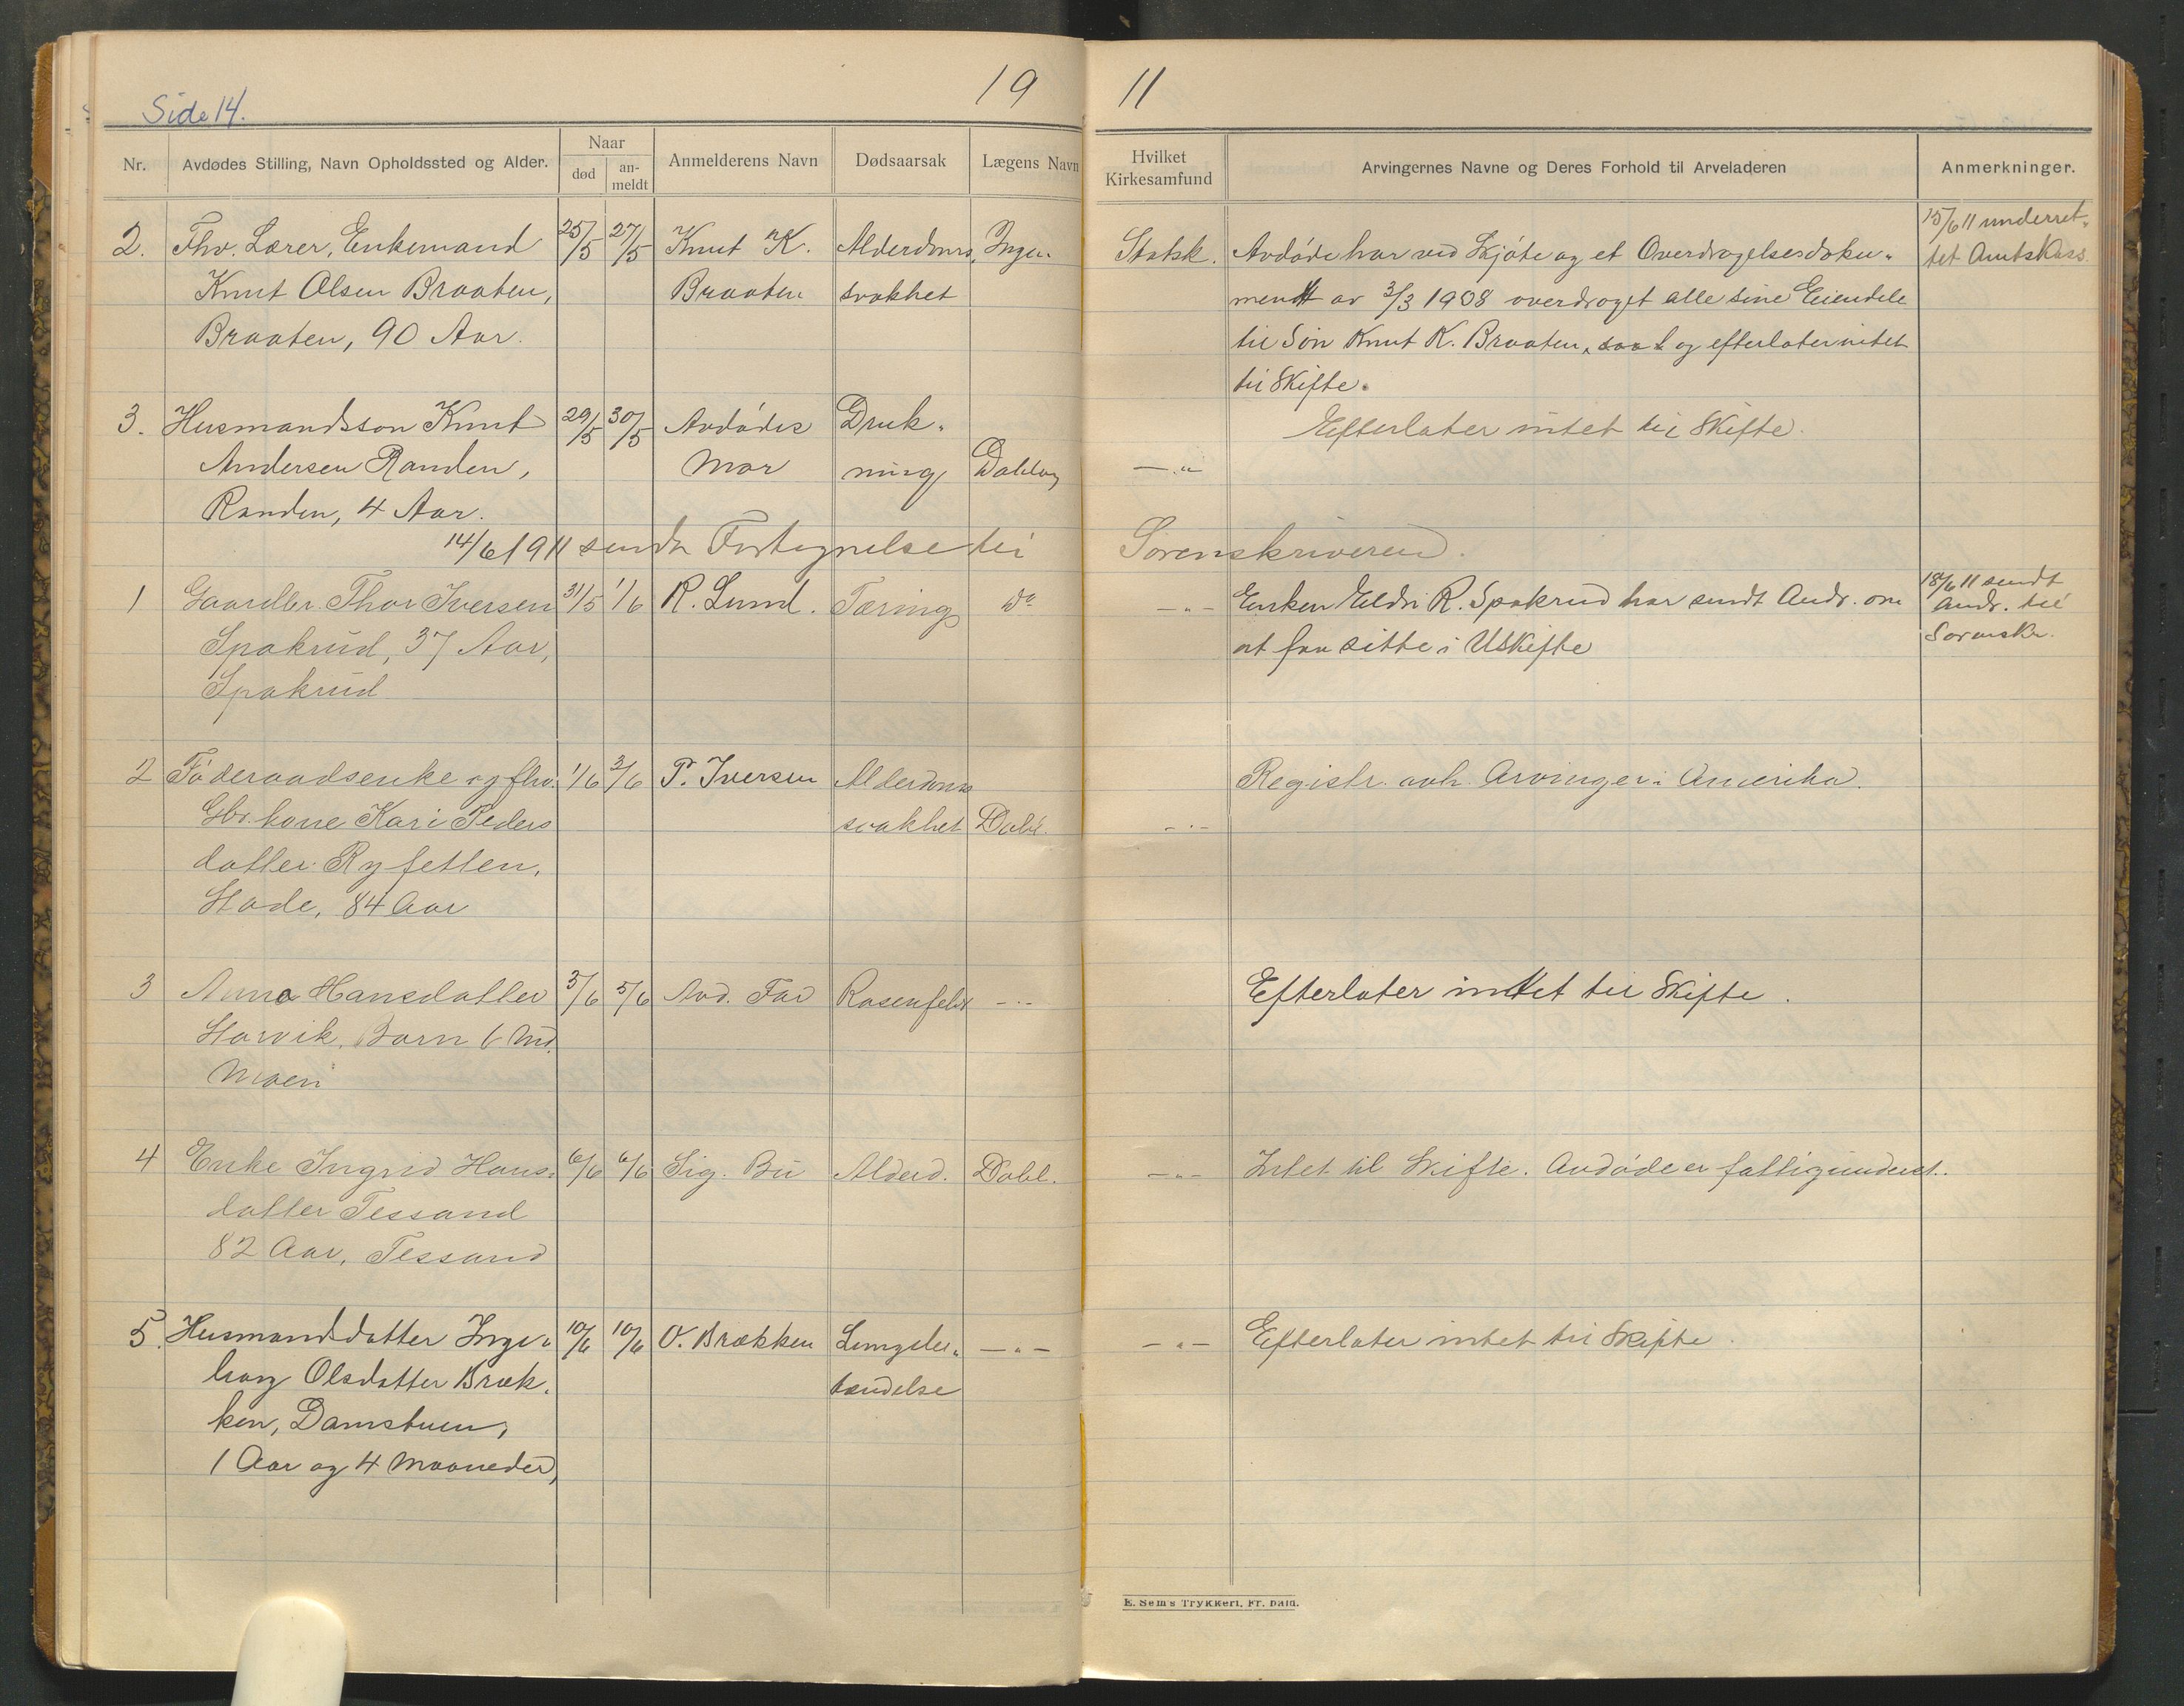 Side 14.
19
11
Nr.
Avdødes Stilling, Navn Opholdssted og Alder.
Naar
død
an-
meldt
Anmelderens Navn
Dødsaarsak
Lægens Navn
Hvilket
Kirkesamfund
Arvingernes Navne og Deres Forhold til Arveladeren
Anmerkninger.
2. Fhv. Lærer, Enkemand 25/5 27/5 Knut K. Alderdoms Ingen Statsk. Avdøde har ved Skjøte og et Overdragelsesdoku- 15/6 11 underret-
Knut Olsen Braaten, Braaten svakhet ment av 3/3 1908 overdraget alle sine Eiendele tet Amtskass.
Braaten, 90 Aar. til Søn Knut K. Braaten, og efterlater intet
til Skifte.
3. Husmandsson Knut 29/5 30/5 Avdødes Druk- Efterlater intet til Skifte.
Andersen Randen, Mor ning —„—
Randen, 4 Aar.
14/6 1911 sendt Fortegnelse til Sorenskriveren.
1 Gaardbr. Thor Iversen 31/5 1/6 R. Lund. Tæring do —„— Enken Eldri R. Spakrud har sendt Andr. om 18/6 11 sendt
Spakrud, 37 Aar, at faa sitte i Uskifte Andr. til
Spakrud Sorenskr.
2 Føderaadsenke og fhv. 1/6 3/6 P. Iversen Alderdoms Registr. avh. Arvinger i Amerika.
Gbr.kone Kari Peders svakhet Dahl. —„—
datter Ryfetten,
Stade, 84 Aar
3 Anna Hansdatter 3/6 5/6 Avd. Far Rosenfeber —„— Efterlater intet til Skifte.
Harvik, Barn 6 Md.
Moen
4 Enke Ingrid Hans- 6/6 6/6 Sig. Bu Alderd. Dahl. —„— Intet til Skifte. Avdøde er fattigunderst.
datter Tessand
82 Aar, Tessand
5. Husmandsdatter Inge- 10/6 10/6 O. Brækken Lungebe- —„— —„— Efterlater intet til Skifte.
borg Olsdatter Bræk- tændelse
ken, Damstuen,
1 Aar og 4 Maaneder,
E. Sem's Trykkeri, Fr.hald.